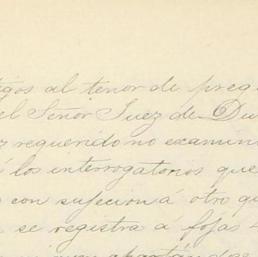 tigos al tenor de preg
el Señor Juez de Du
z requerido no examin
i los interrogatorios que
con sujecion á otro q
se registra á fojas